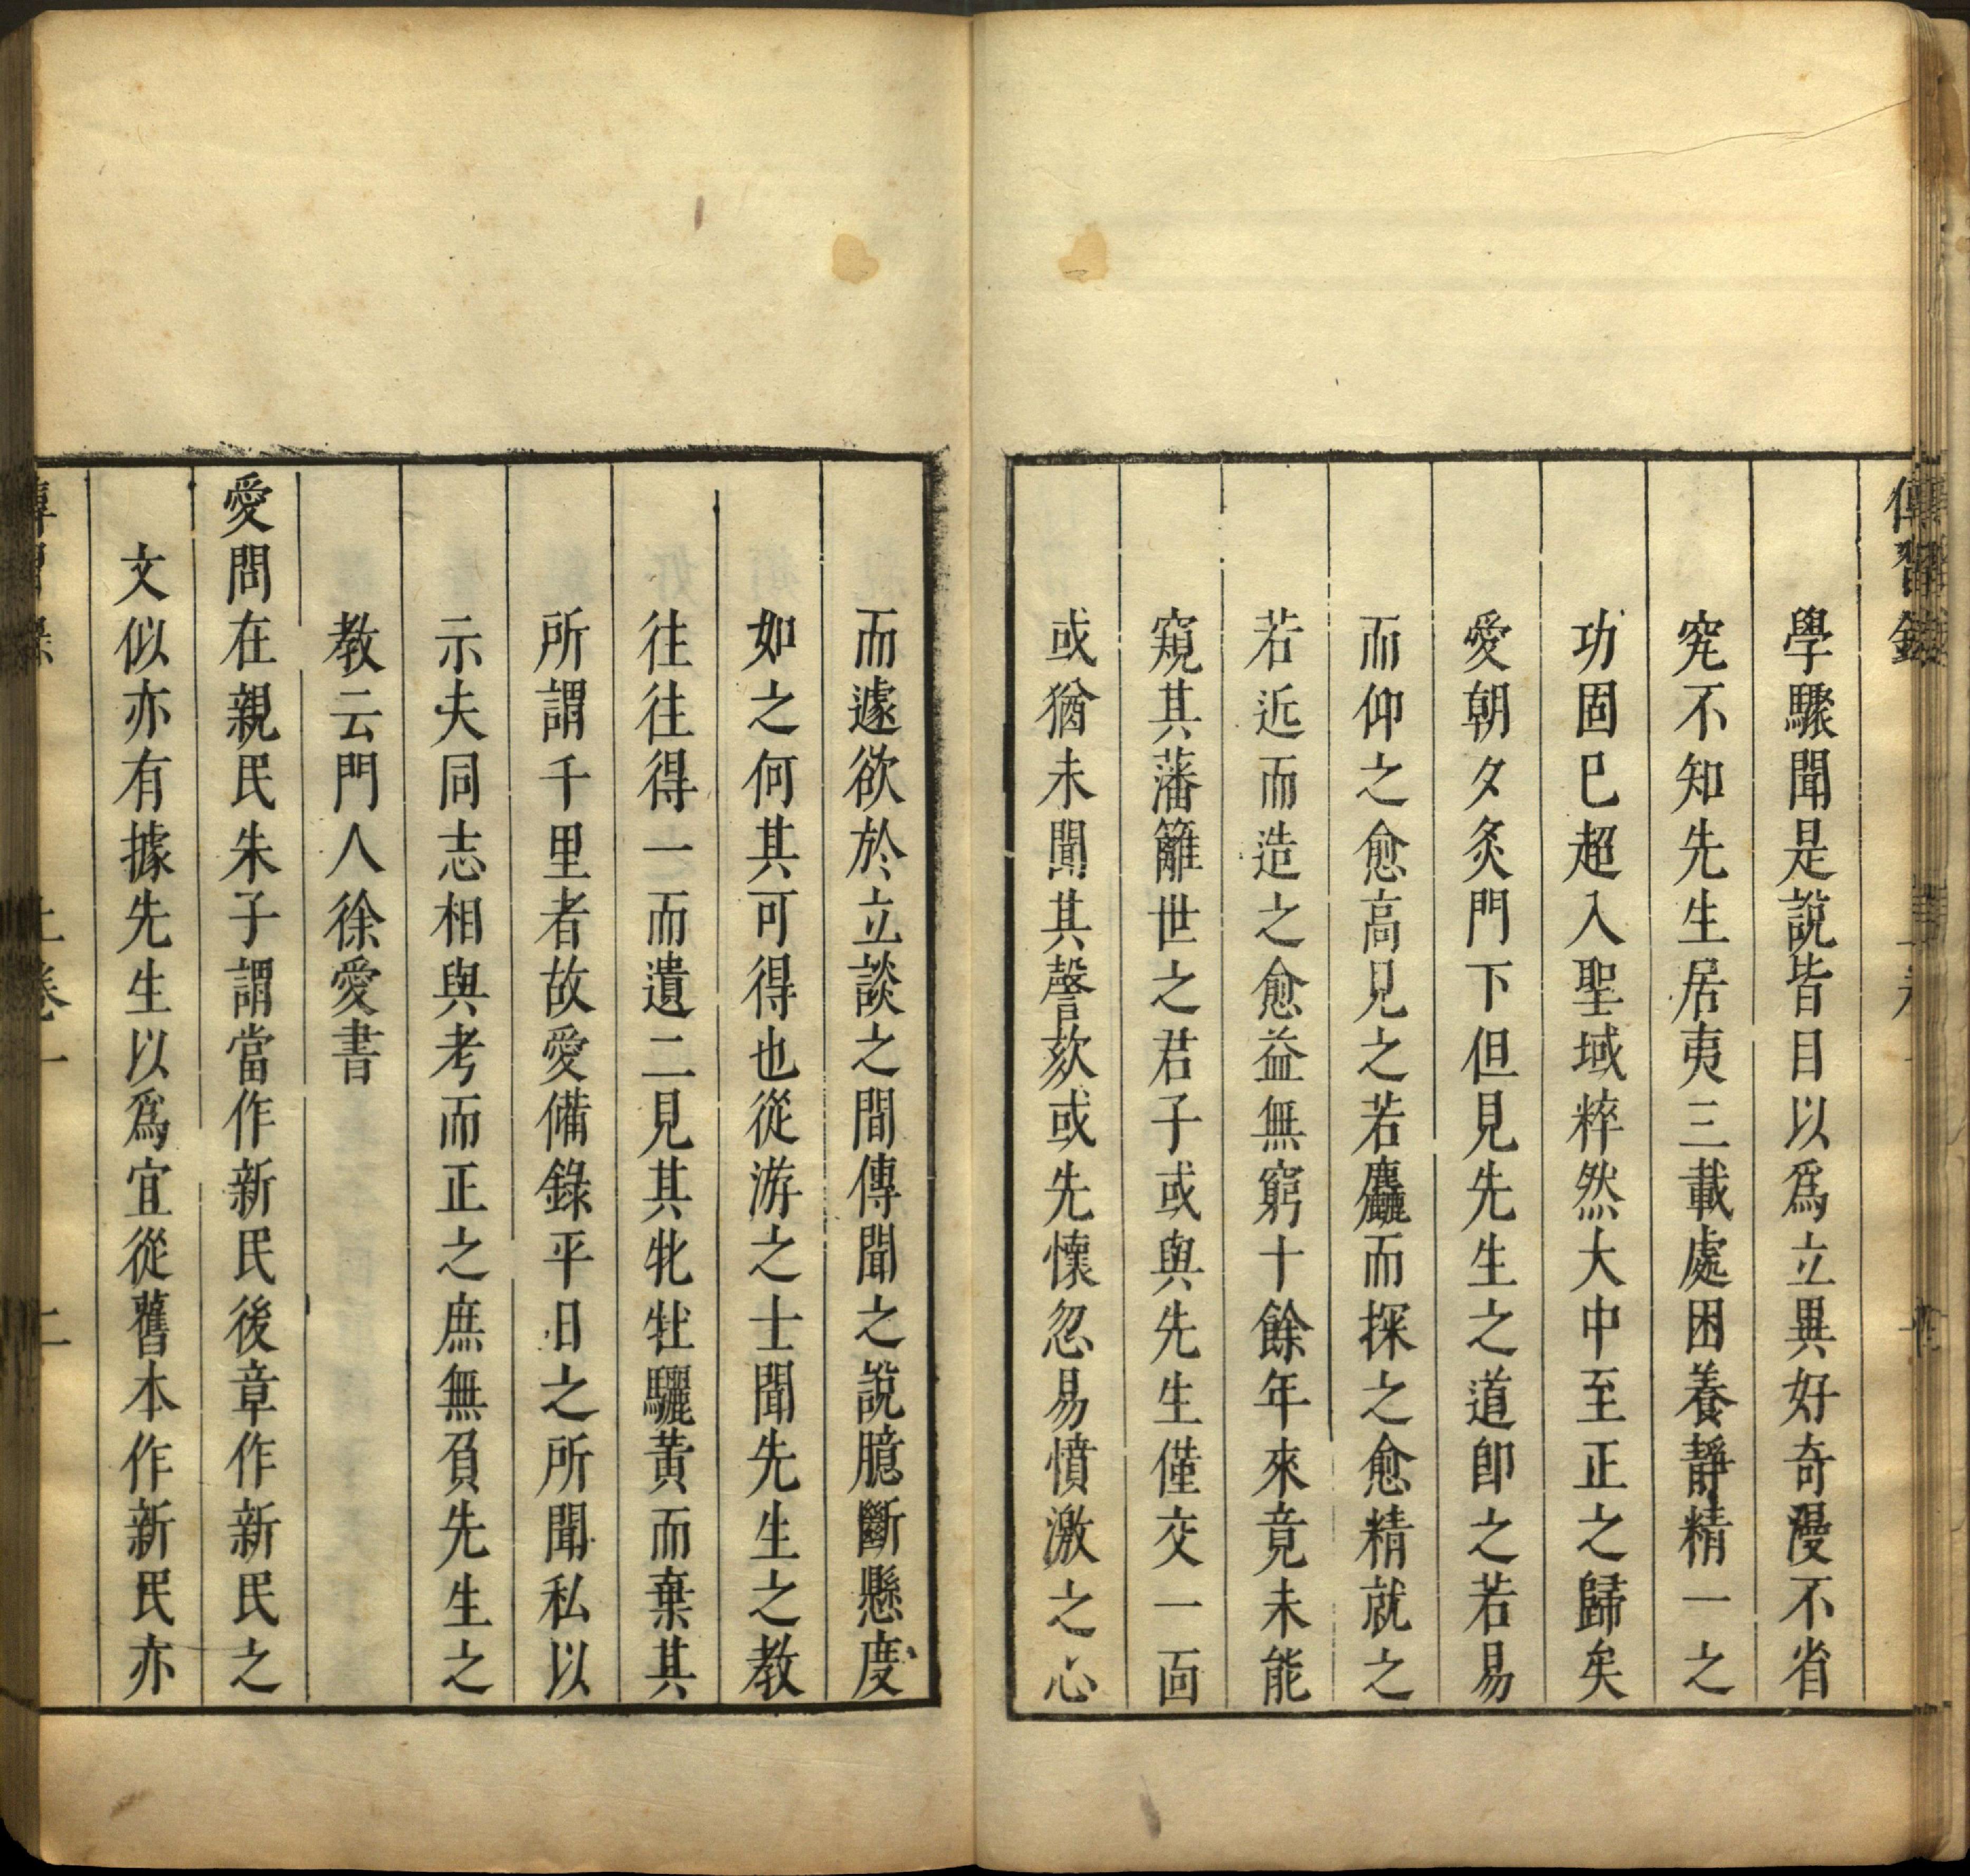 傳習錄
學驟聞是說皆目以爲立異好奇漫不省
究不知先生居夷三載處困養靜精一之
功固已超入聖域粹然大中至正之歸矣
愛朝夕炙門下但見先生之道卽之若易
而仰之愈高見之若麤而探之愈精就之
若近而造之愈益無窮十餘年來竟未能
窺其藩籬世之君子或與先生僅交一面
或猶未聞其謦欬或先懷忽易憤激之心
而遽欲於立談之間傳聞之說臆斷懸度
如之何其可得也從游之士聞先生之教
往往得一而遺二見其牝牡驪黃而棄其
所謂千里者故愛備錄平日之所聞私以
示夫同志相與考而正之庶無負先生之
教云門人徐愛書
愛問在親民朱子謂當作新民後章作新民之
文似亦有據先生以爲宜從舊本作新民亦
上卷一